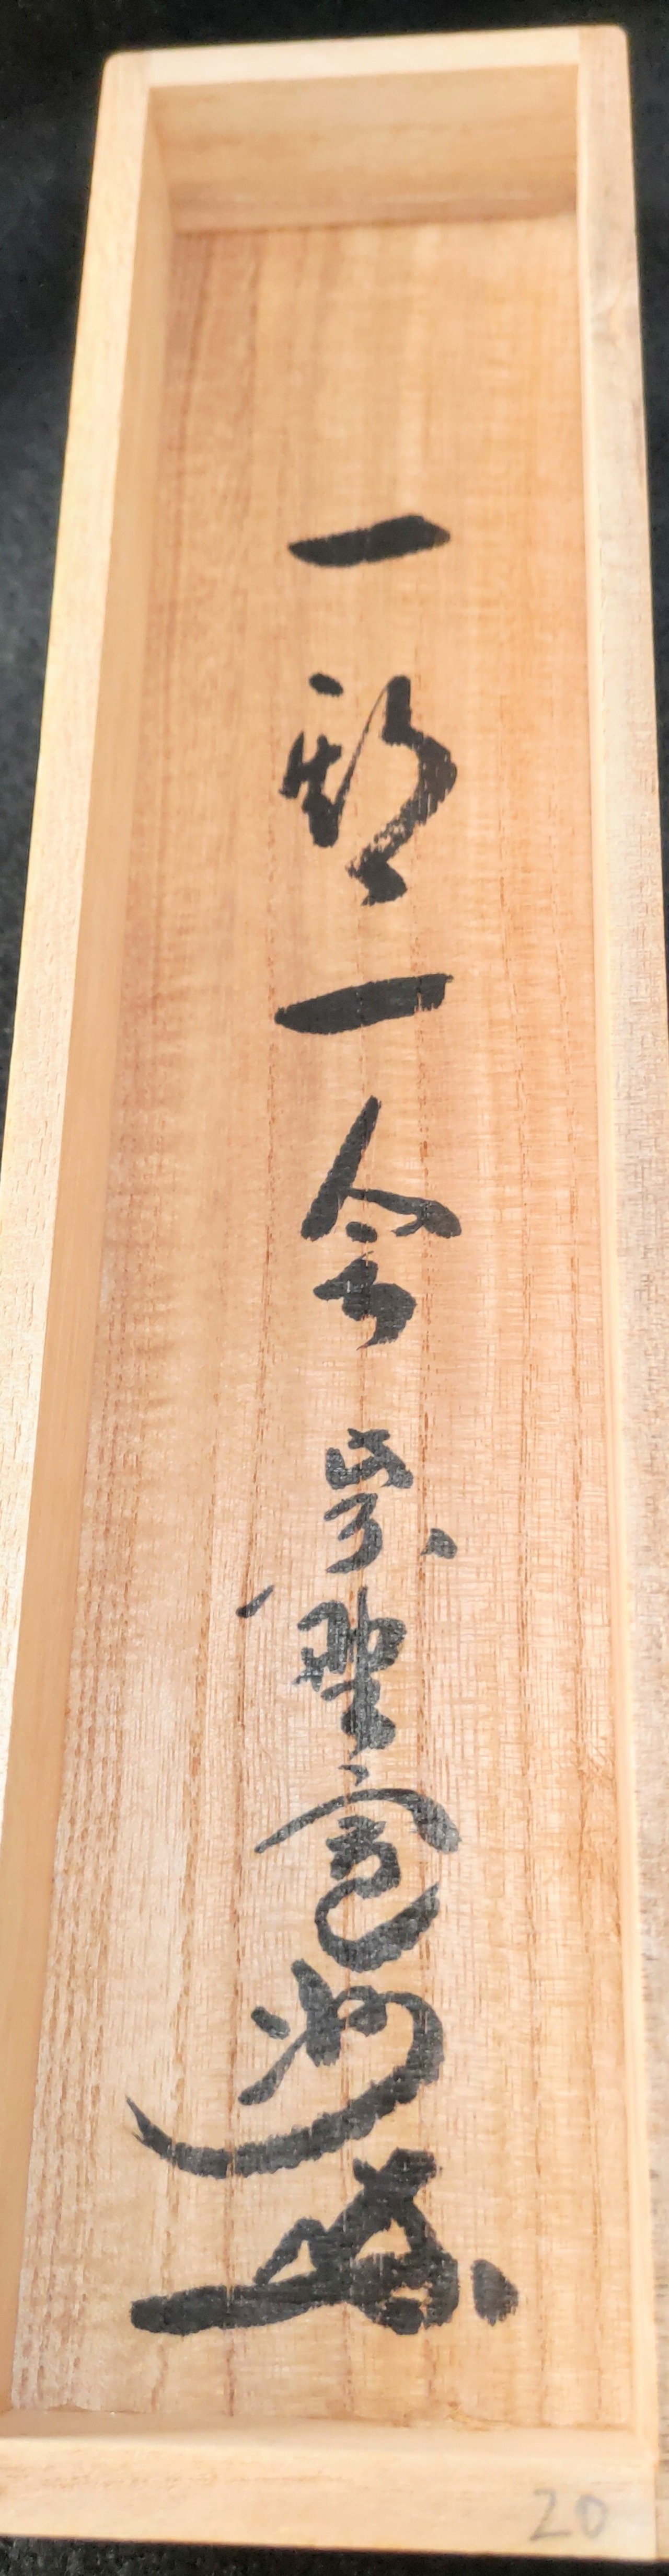 一期一会 紫野寛州
20